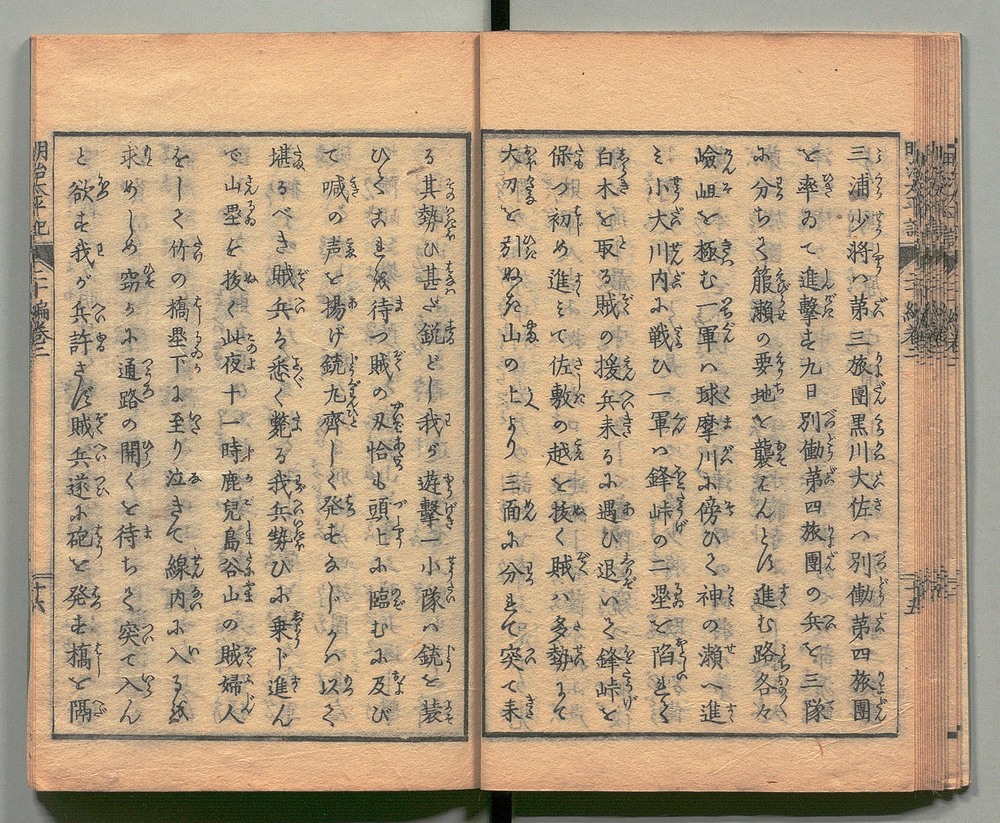 三浦少将ハ第三旅團黒川大佐ハ別働第四旅團
を率ゐて進撃す九日別働第四旅團の兵を三隊
に分ちて箙瀬の要地を襲はんとに進む路各々
嶮岨を極む一軍ハ球摩川に傍ひて神の瀬へ進
み小大川内に戦ひ一軍ハ鋒峠の二塁を陥れて
白木を取る賊の援兵来るに遇ひ退いて鋒峠を
保つ初め進みて佐敷の越を抜く賊ハ多勢にて
大刀を引ぬき山の上より三面に分れて突て来
る其勢ひ甚だ鋭どし我が遊撃一小隊ハ銃を装
ひてこれを待つ賊の刄恰も頭上に臨むに及び
て喊の声を揚げ銃丸齊しく発もなじかハ以て
堪るべき賊兵が悉く斃る我兵勢ひに乗じ進ん
で山塁を抜く此夜十一時鹿兒島谷山の賊婦人
をして竹の橋塁下に至り泣きて線内に入るを
求めしめ窃かに通路の開くを待ちて突て入ん
と欲す我が兵許さず賊兵遂に砲を発す橋を隔
明治太平記
二十編巻二
十六
十五